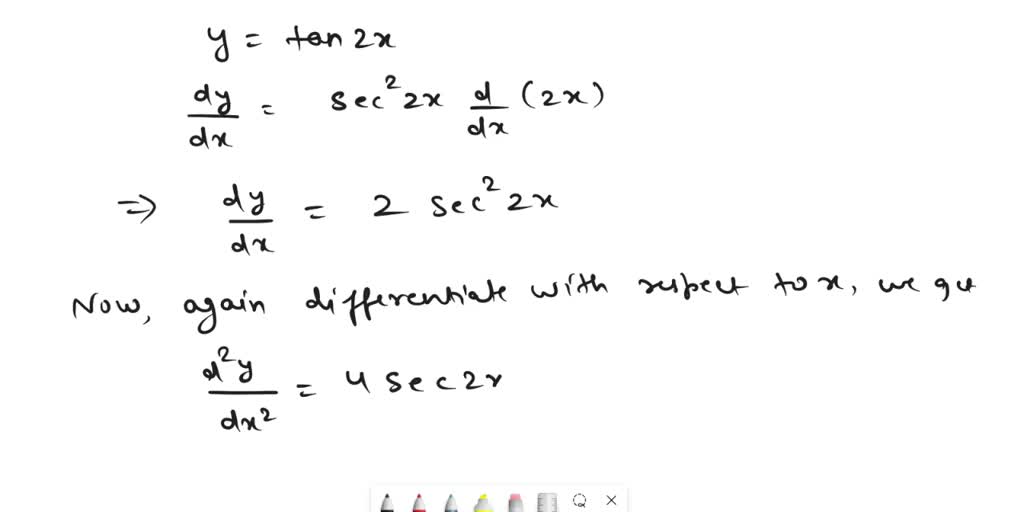 y = tan 2x
dy/dx = sec² 2x d/dx (2x)
⇒ dy/dx = 2 sec² 2x
Now, again differentiate with respect to x, we get
d²y/dx² = 4 sec 2x